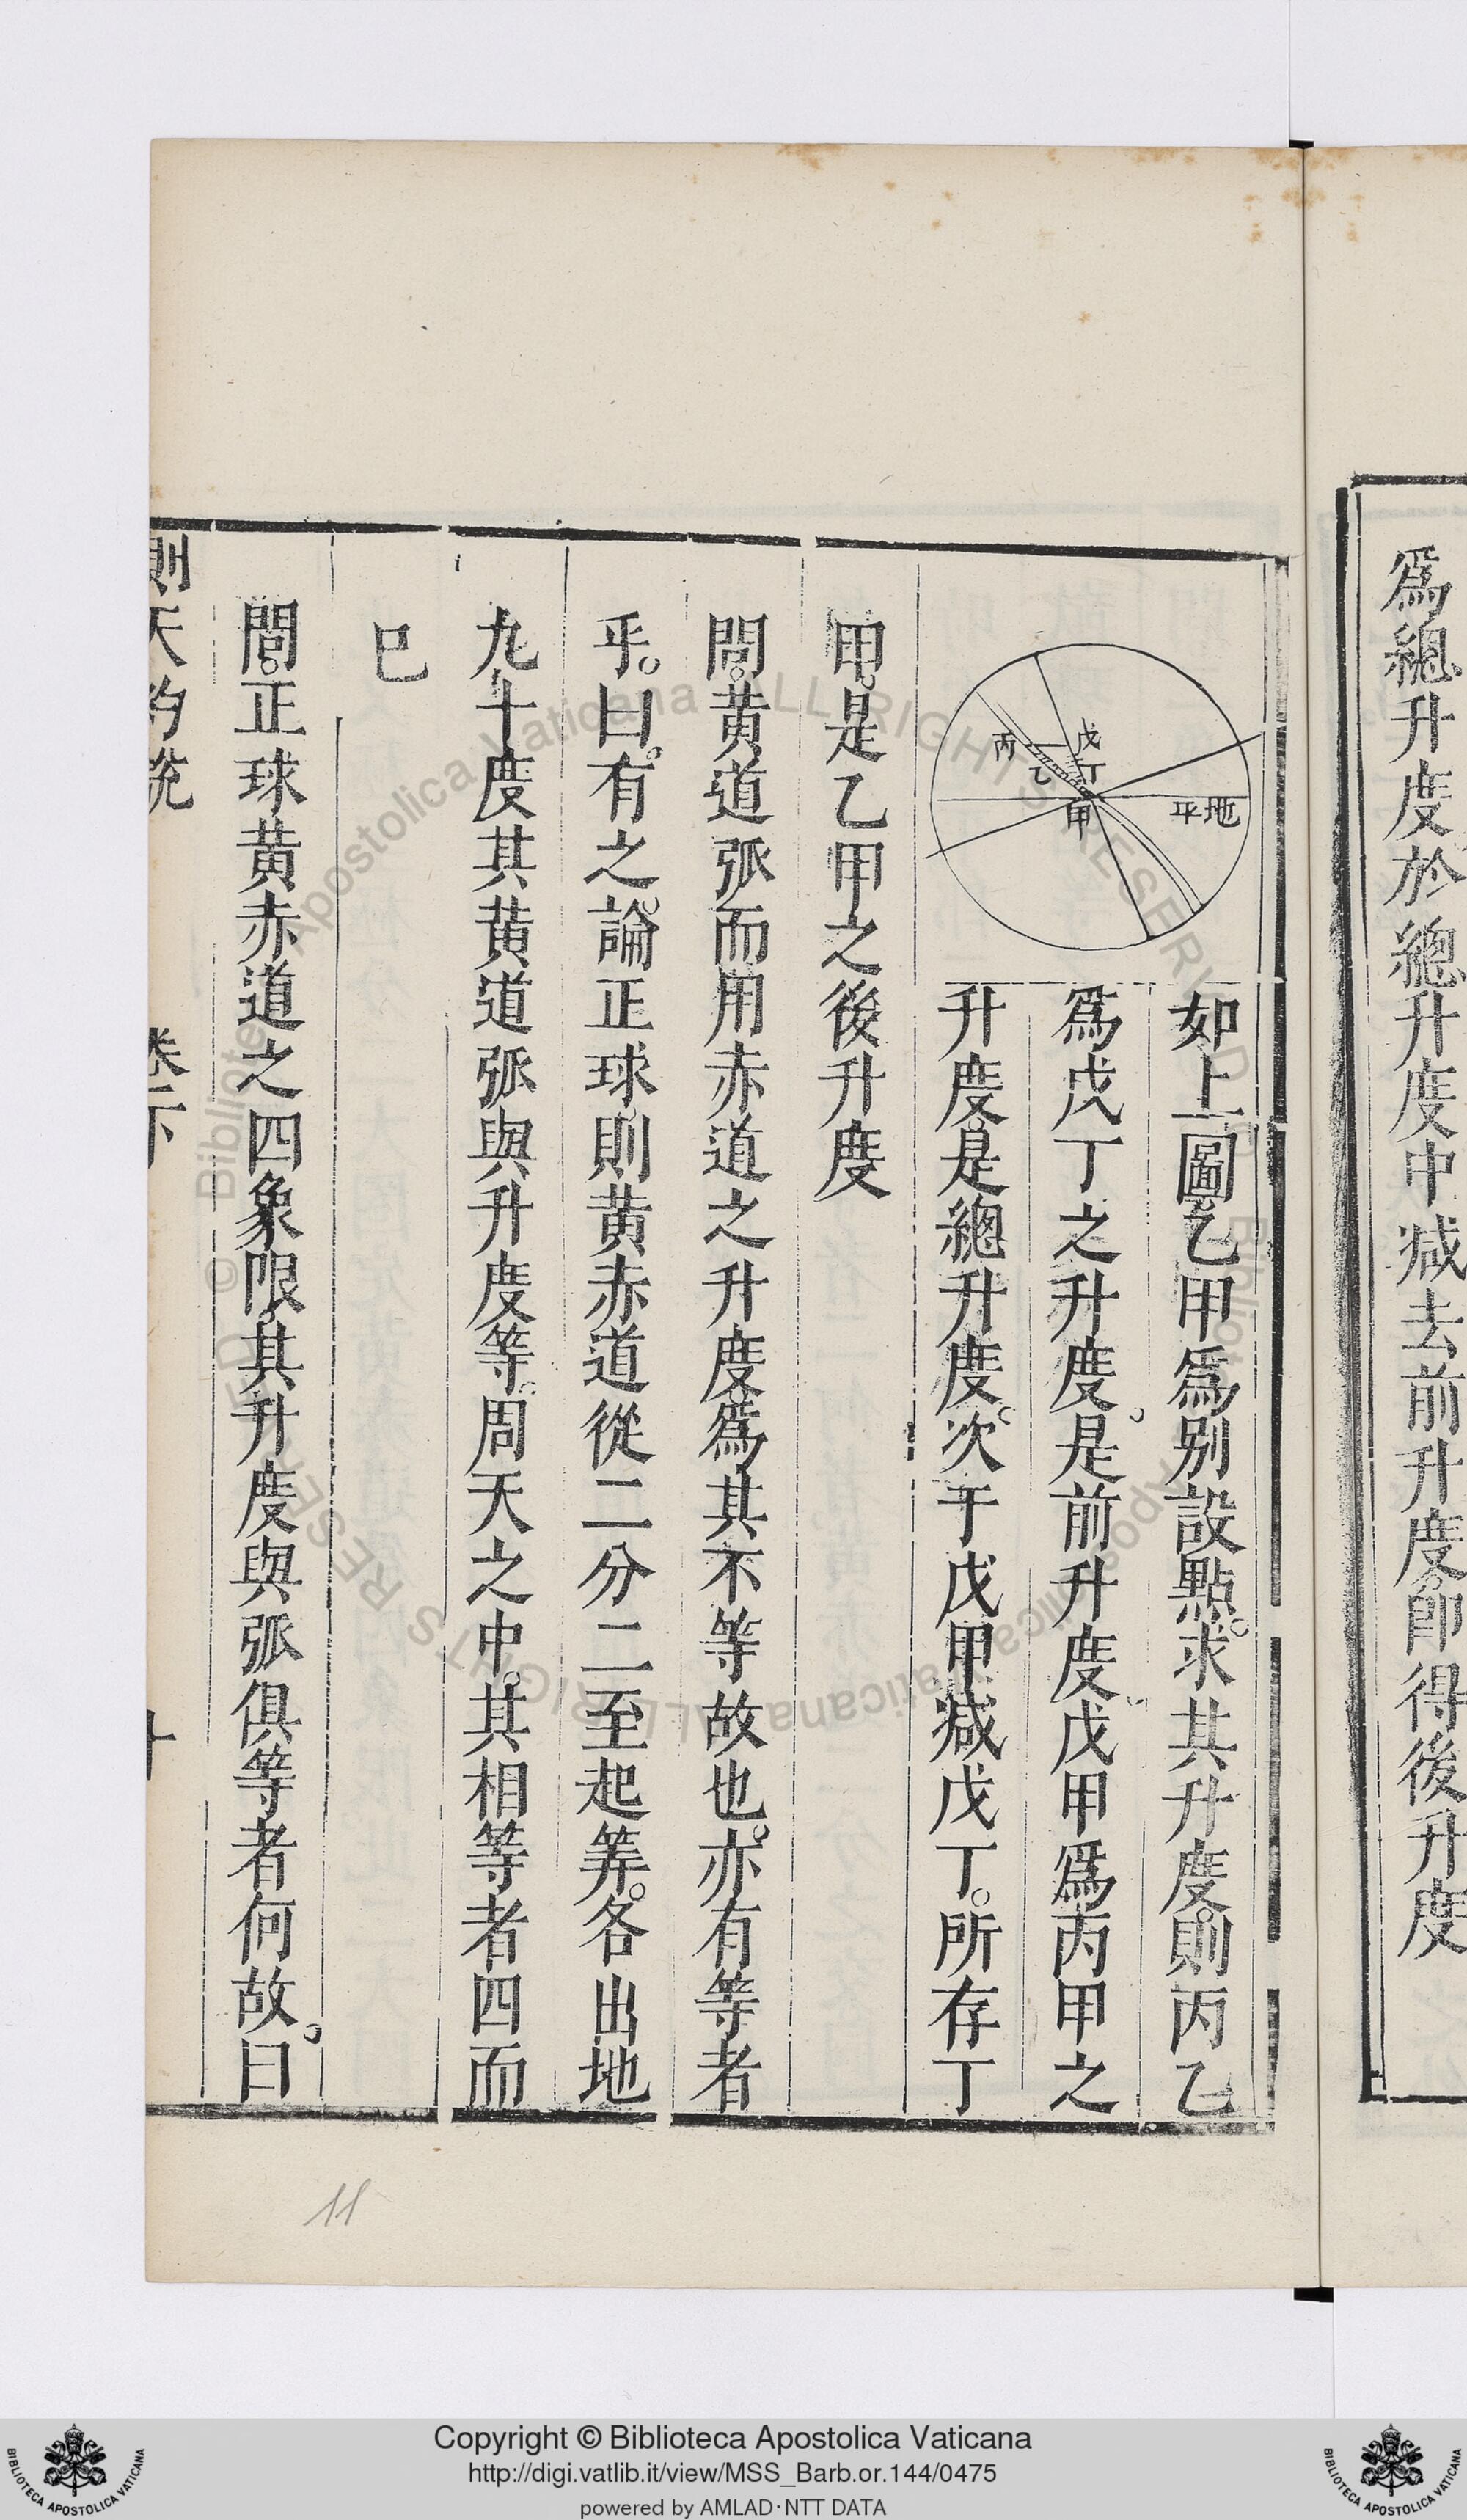 爲總升度於總升度中減去前升度。卽得後升度
如上圖。乙甲爲別設點。求其升度。則丙乙
爲戊丁之升度。是前升度。戊甲爲丙甲之
升度。是總升度。次于戊甲減戊丁。所存丁
戊
丁
丙
乙
甲
地平
甲。是乙甲之後升度
問。黃道弧而用赤道之升度。爲其不等故也。亦有等者
乎。曰。有之。論正球。則黃赤道從二分二至起筭。各出地
九十度。其黃道弧與升度等。周天之中。其相等者四而
巳
問。正球黃赤道之四象限。其升度與弧俱等者何故。曰
測天約說
卷下
十
11
Copyright © Biblioteca Apostolica Vaticana
http://digi.vatlib.it/view/MSS_Barb.or.144/0475
powered by AMLAD·NTT DATA
BIBLIOTECA APOSTOLICA VATICANA
BIBLIOTECA APOSTOLICA VATICANA